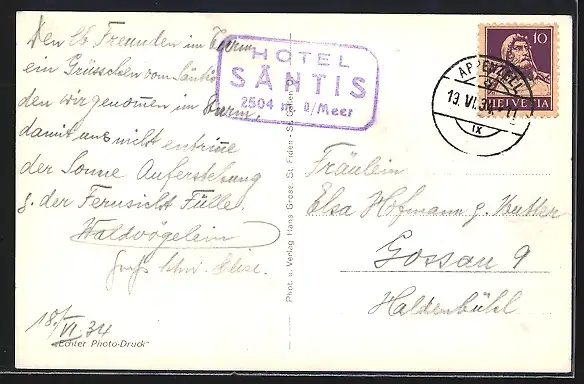 Den lb Freunden im Turm
ein Grüsschen vom Säntis
den wir genommen im Sturm,
damit uns nicht entrinne
der Sonne Auferstehung
g. der Fernsicht Fülle.
Waldvögelein
Elise.
18/VI.34
"Echter Photo-Druck"
HOTEL
SÄNTIS
2504 m ü/Meer
Phot. u. Verlag Hans Gross, St. Fiden - St. Gallen O
10
HELVETIA
APPENZELL
19.VI.34
IX
Fräulein
Elsa Hofmann g.
Gossau 9
Haldenbühl